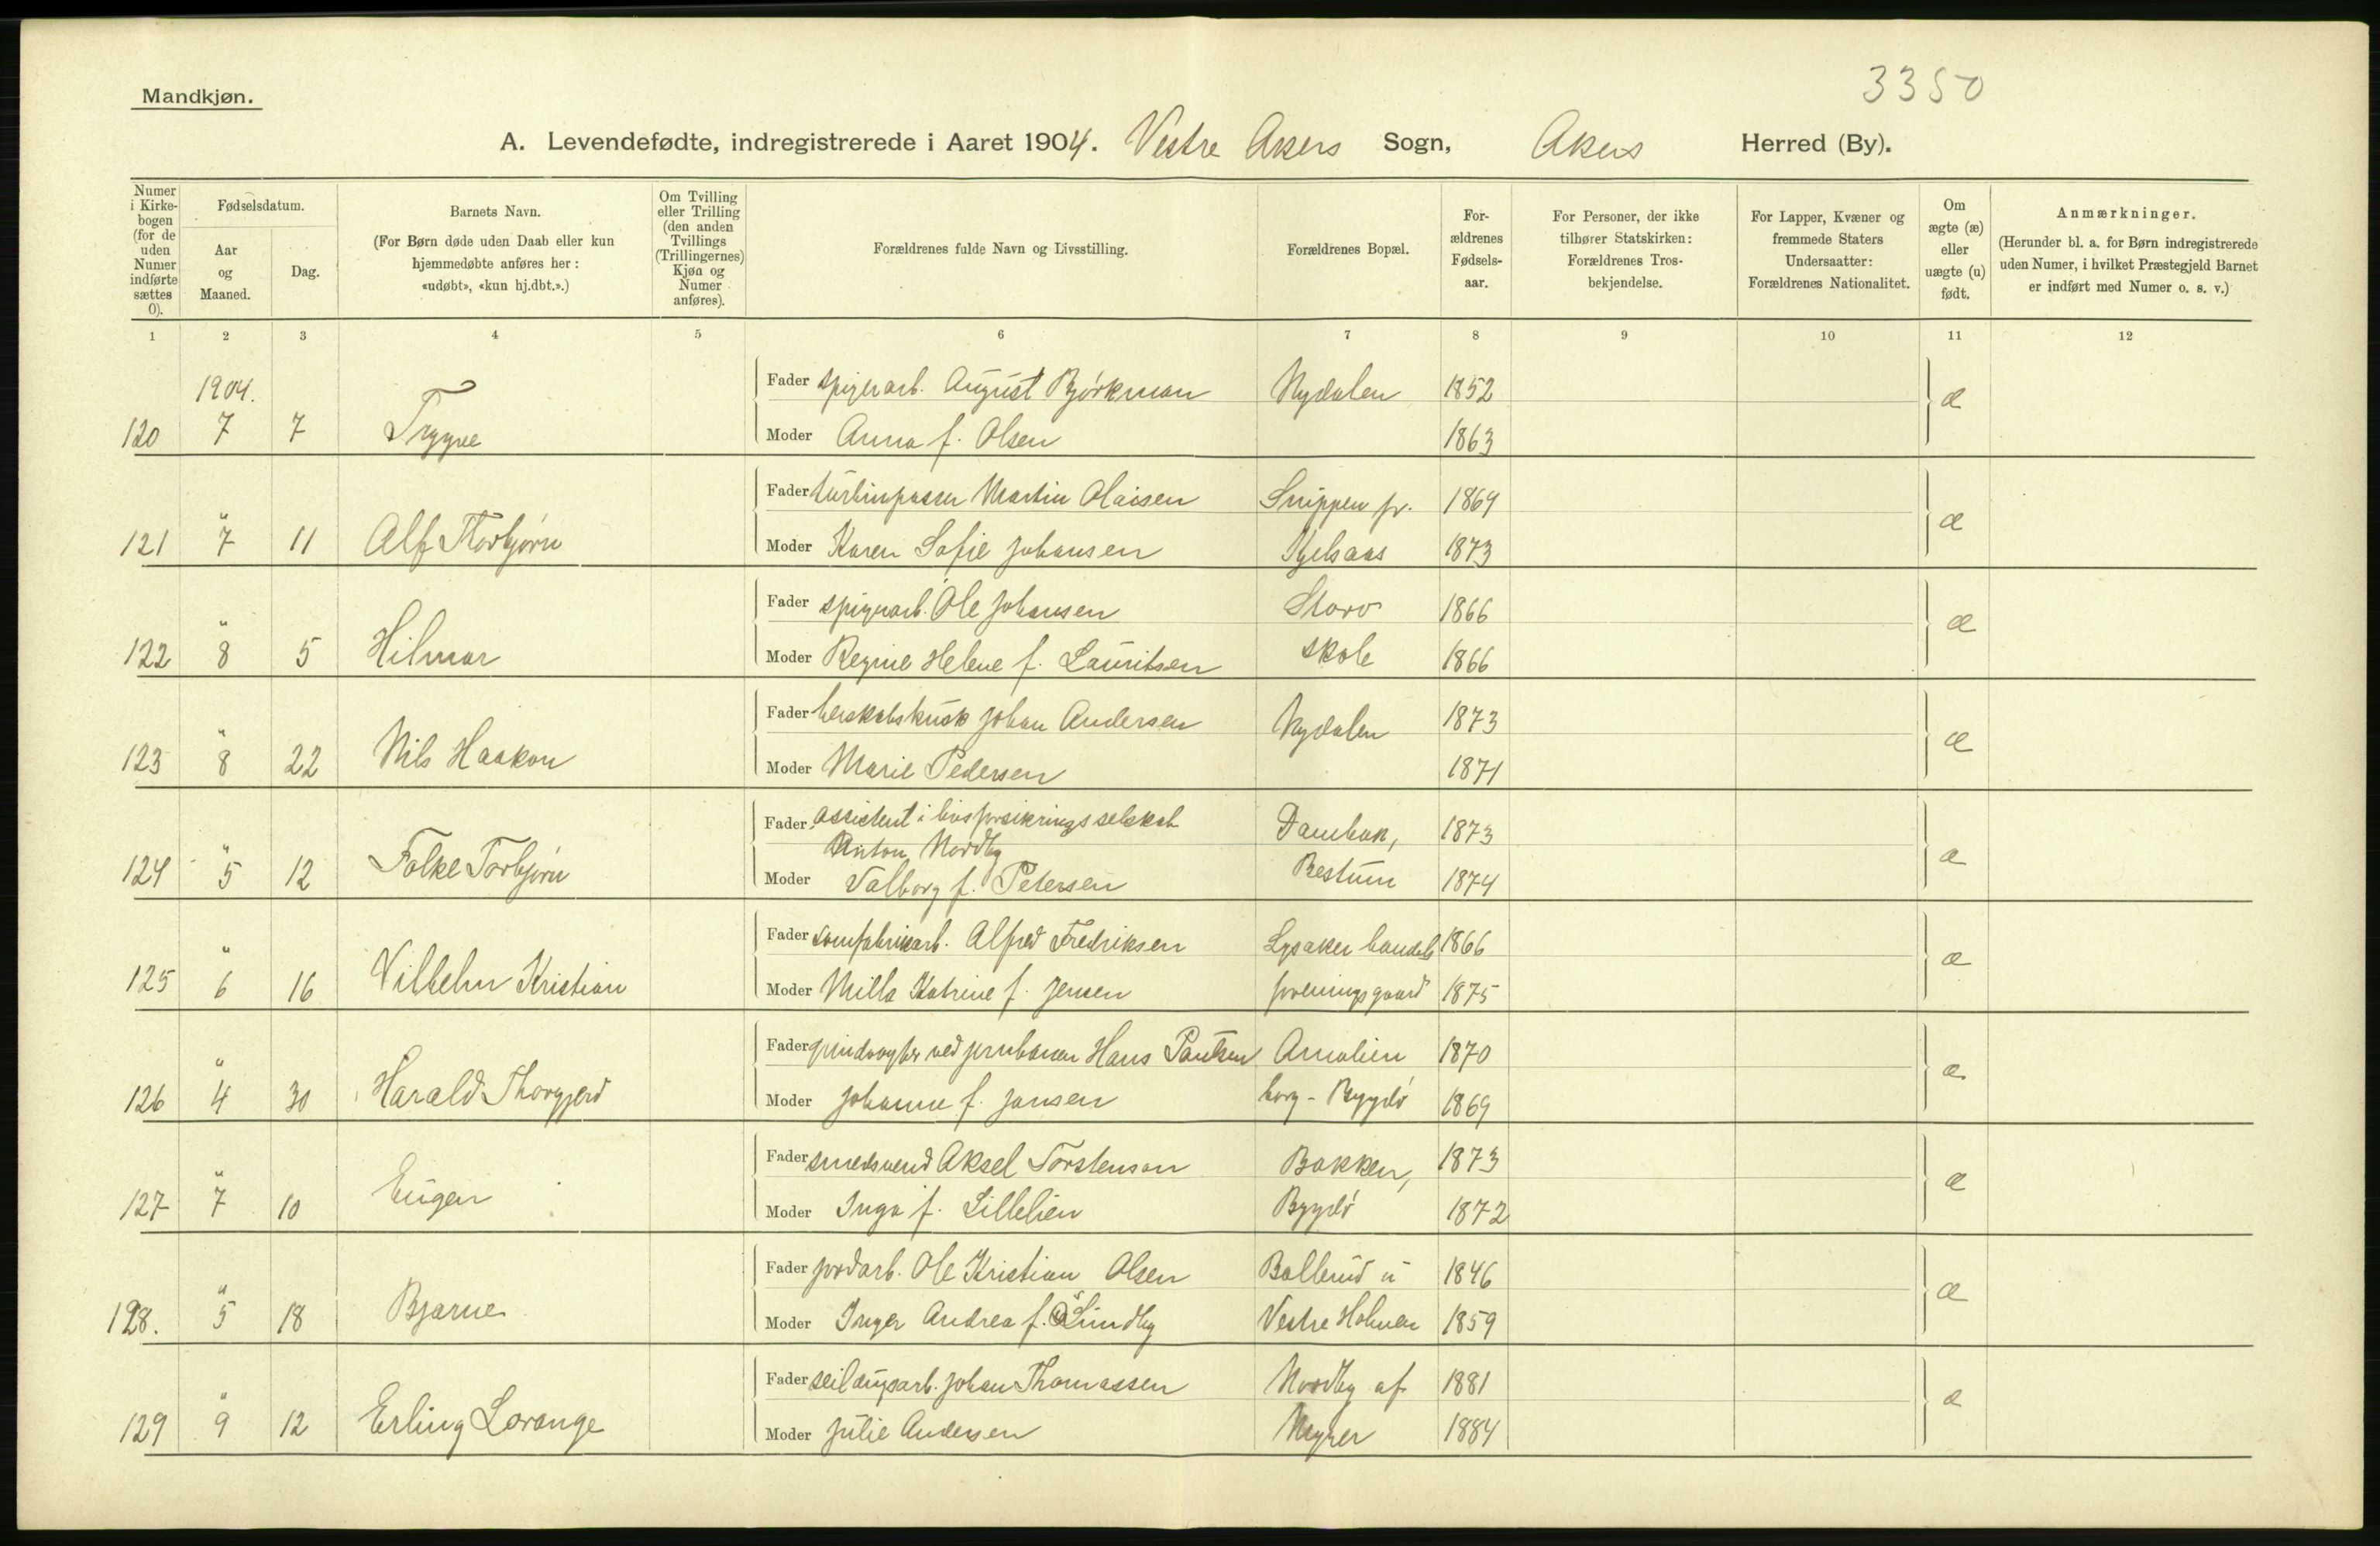 3350
Mandkjøn.
A. Levendefødte, indregistrerede i Aaret 1904. Vestre Akers Sogn, Akers Herred (By).
Numer i Kirke-bogen (for de uden Numer indførte sættes 0).
Fødselsdatum.
Aar og Maaned.
Dag.
Barnets Navn.
(For Børn døde uden Daab eller kun hjemmedøbte anføres her: «udøbt», «kun hj.dbt.».)
Om Tvilling eller Trilling (den anden Tvillings (Trillingernes) Kjøn og Numer anføres).
Forældrenes fulde Navn og Livsstilling.
Forældrenes Bopæl.
For-ældrenes Fødsels-aar.
For Personer, der ikke tilhører Statskirken: Forældrenes Tros-bekjendelse.
For Lapper, Kvæner og fremmede Staters Undersaatter: Forældrenes Nationalitet.
Om ægte (æ) eller uægte (u) født.
Anmærkninger.
(Herunder bl. a. for Børn indregistrerede uden Numer, i hvilket Præstegjeld Barnet er indført med Numer o. s. v.)
1 2 3 4 5 6 7 8 9 10 11 12
1904.
Fader spigerarb. August Bjørkman Nydalen 1852 æ
120 7 7 Trygve Moder Anna f. Olsen 1863
Fader turbinpasser Martin Olaisen Snippen pr. 1869 æ
121 " 7 11 Alf Thorbjørn Moder Karen Sofie Johansen Kjelsaas 1873
Fader spigerarb. Ole Johansen Storo 1866 æ
122 " 8 5 Hilmar Moder Regine Helene f. Lauritsen skole 1866
Fader herskabskusk Johan Andersen Nydalen 1873 æ
123 " 8 22 Nils Haakon Moder Marie Pedersen 1871
Fader assistent i livsforsikringsselskab Dambak, 1873 æ
Anton Nordby
124 " 5 12 Folke Torbjørn Moder Valborg f. Petersen Bestum 1874
Fader sømfabrikarb. Alfred Fredriksen Lysaker handels 1866 æ
125 " 6 16 Vilhelm Kristian Moder Milla Katrine f. Jensen foreningsgaard 1875
Fader grindvogter ved jernbanen Hans Paulsen Amalien 1870 æ
126 " 4 30 Harald Thorgjerd Moder Johanne f. Jansen borg - Bygdø 1869
Fader smedsvend Aksel Torstenson Bakken, 1873 æ
127 " 7 10 Eugen Moder Inga f. Lillelien Bygdø 1872
Fader jordarb. Ole Kristian Olsen Ballerud u 1846 æ
128. " 5 18 Bjarne Moder Inger Andrea f. Lindby Vestre Holmen 1859
Fader seildugsarb. Johan Thomassen Nordby af 1881 æ
129 " 9 12 Erling Lorange Moder Julie Andersen Myrer 1884